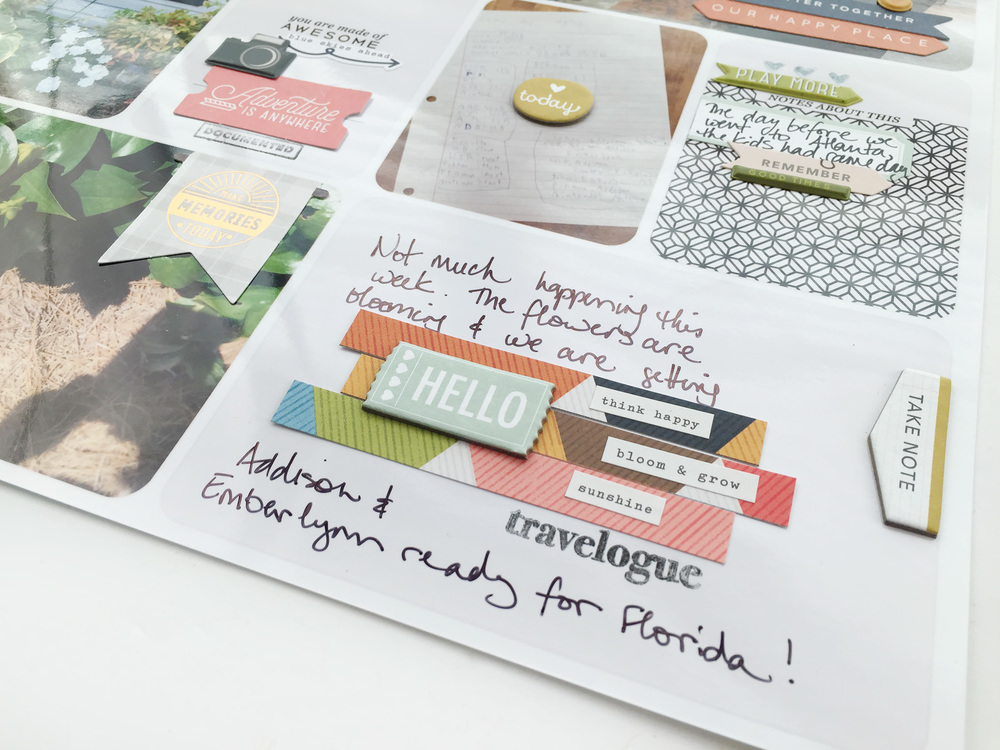 TTER TOGETHER
OUR HAPPY PLACE
you are made of
AWESOME
blue skies ahead
Adventure
IS ANYWHERE
DOCUMENTED
today
PLAY MORE
NOTES ABOUT THIS
The day before we
went to Atlanta
the kids had game day
REMEMBER
GOOD TIMES
MEMORIES
TODAY
Not much happening this
week. The flowers are
blooming & we are getting
HELLO
think happy
bloom & grow
sunshine
TAKE NOTE
travelogue
Addison &
Emberlynn ready for Florida!